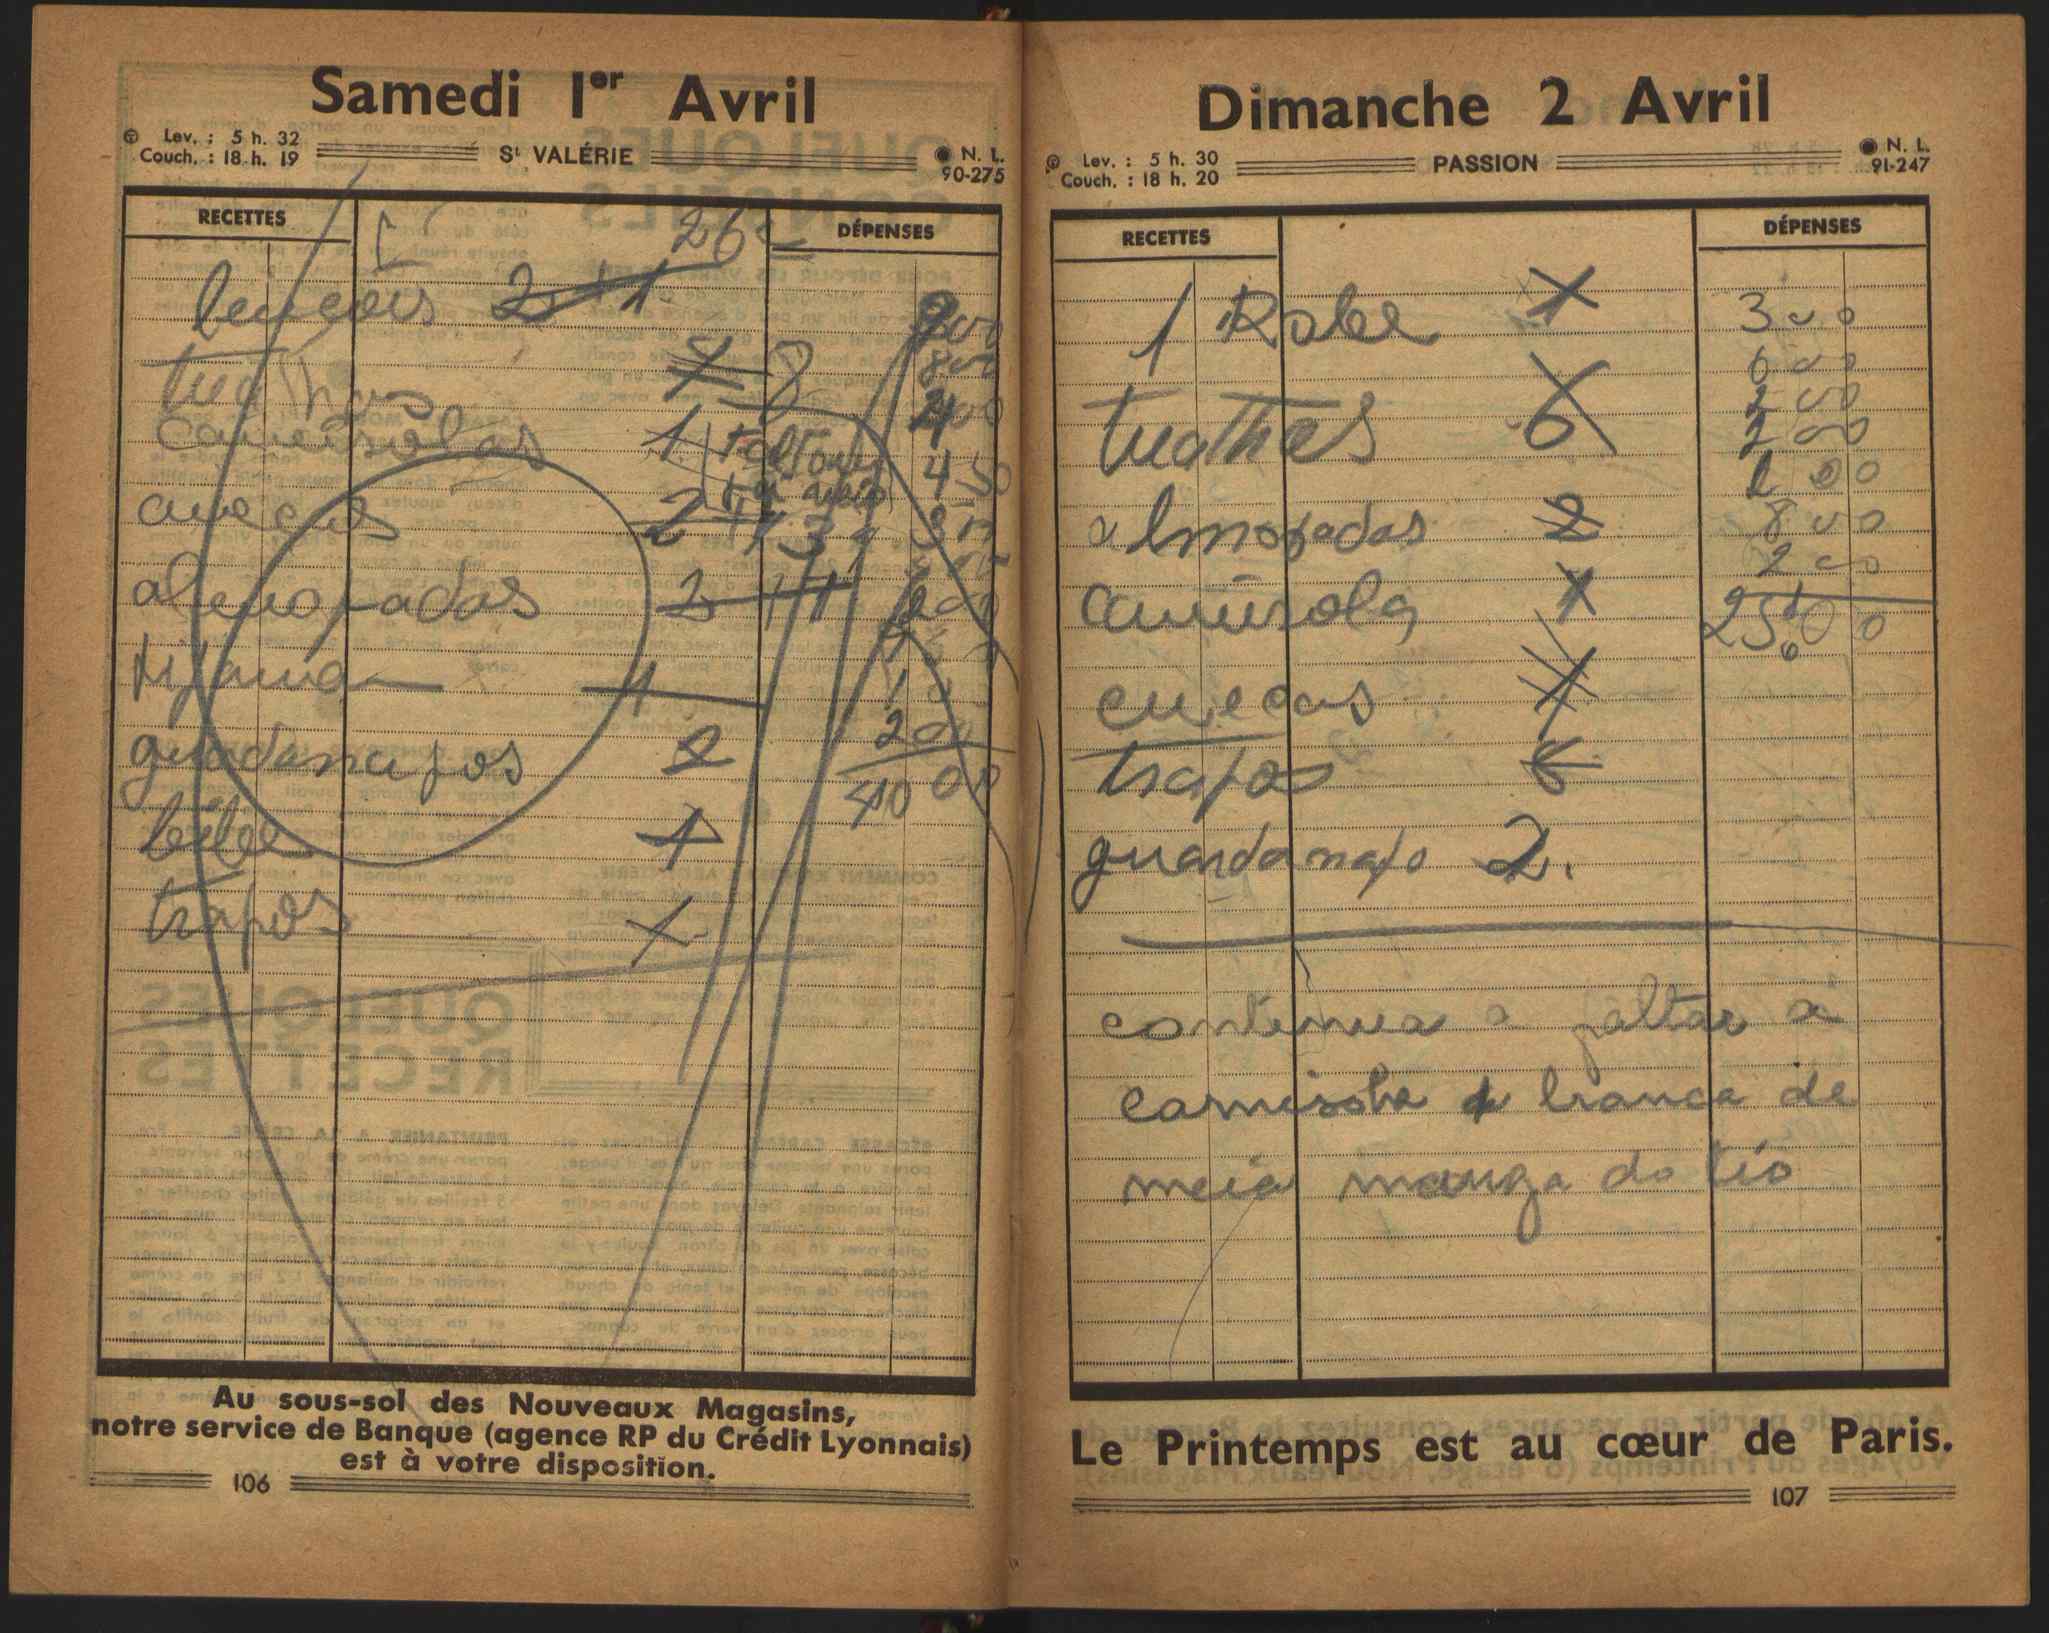 Samedi 1er Avril
Lev. : 5 h. 32
Couch. : 18 h. 19
St VALÉRIE
N. L.
90-275
RECETTES
DÉPENSES
26
lençois 2 + 1
camisolas 1
cuecas 2 + 1 3
almofadas 2 + 1
1
guardanapos 2 200
40 00
bébé 1
trapos 1
Au sous-sol des Nouveaux Magasins,
notre service de Banque (agence RP du Crédit Lyonnais)
est à votre disposition.
106
Dimanche 2 Avril
Lev. : 5 h. 30
Couch. : 18 h. 20
PASSION
N. L.
91-247
RECETTES
DÉPENSES
1 Robe 1 300
600
200
6
200
almofadas 2
800
200
camisola 1
cuecas 1
trapos 6
guardanapo 2.
continua a faltar a
camisola branca de
meia manga do tio
Le Printemps est au cœur de Paris.
107